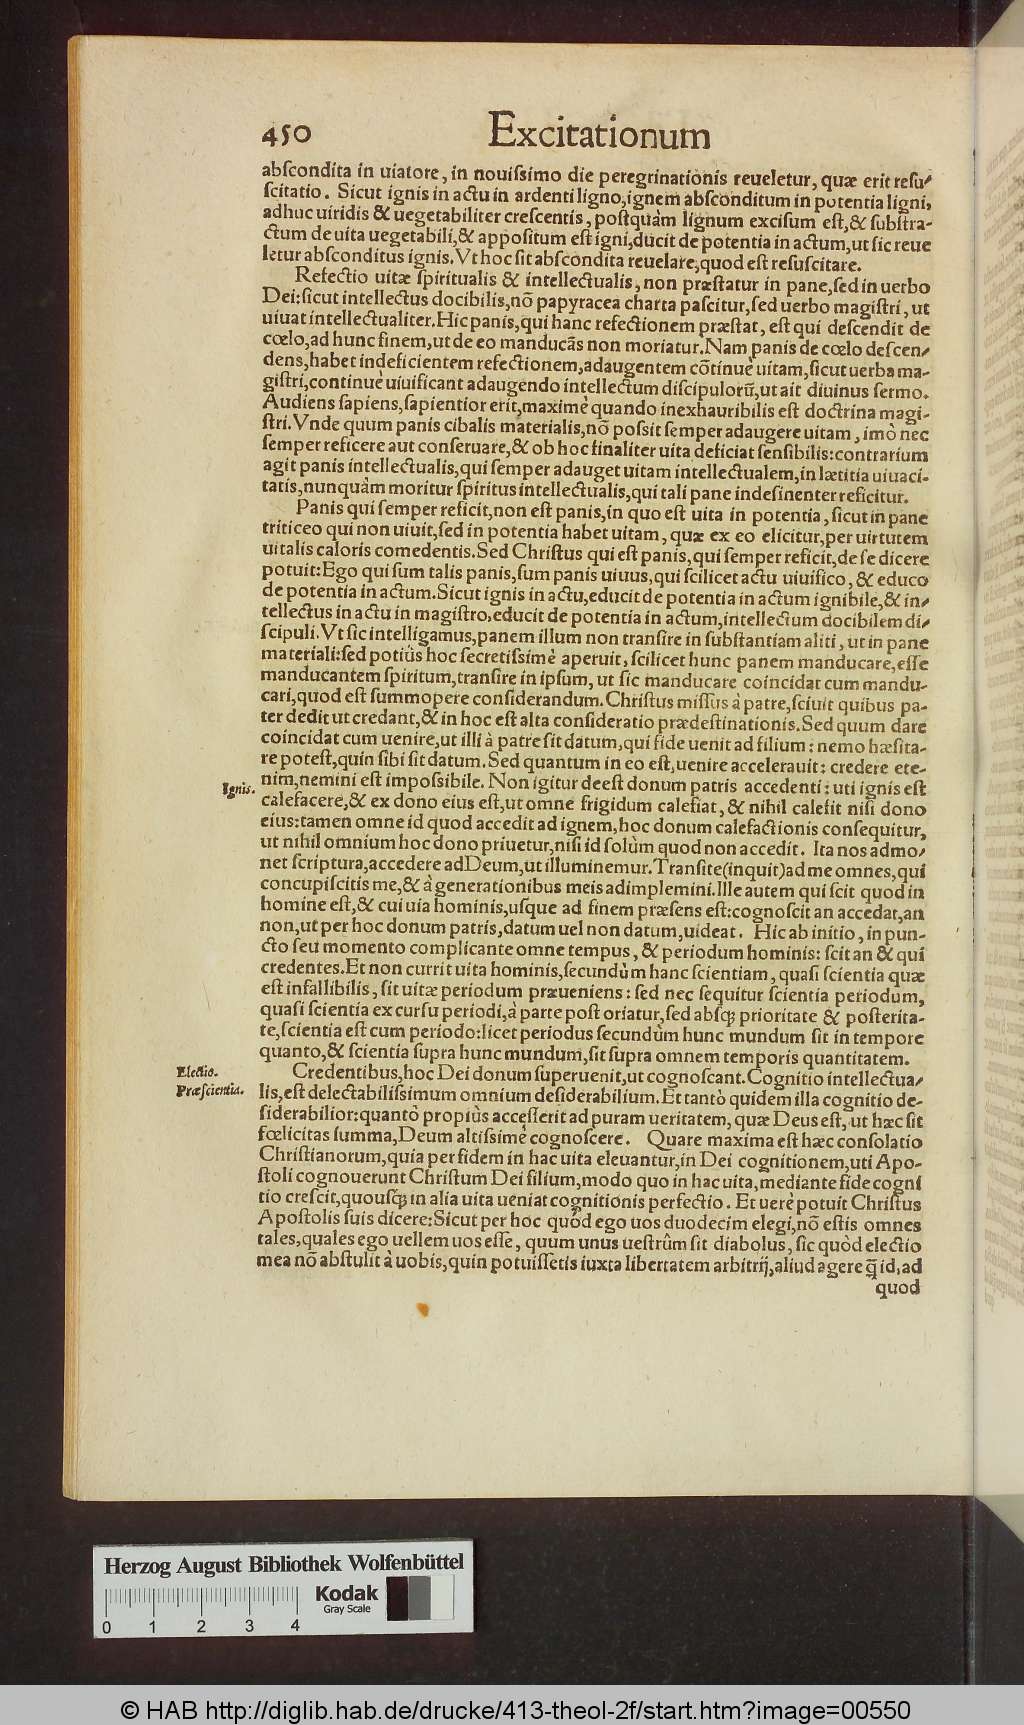 450 Excitationum
abſcondita in uiatore, in nouiſsimo die peregrinationis reueletur, quæ erit reſu-
ſcitatio. Sicut ignis in actu in ardenti ligno, ignem abſconditum in potentia ligni,
adhuc uiridis & uegetabiliter creſcentis, poſtquàm lignum exciſum eſt, & ſubſtra-
ctum de uita uegetabili, & appoſitum eſt igni, ducit de potentia in actum, ut ſic reue
letur abſconditus ignis. Vt hoc ſit abſcondita reuelare, quod eſt reſuſcitare.
Refectio uitæ ſpiritualis & intellectualis, non præſtatur in pane, ſed in uerbo
Dei: ſicut intellectus docibilis, nõ papyracea charta paſcitur, ſed uerbo magiſtri, ut
uiuat intellectualiter. Hic panis, qui hanc refectionem præſtat, eſt qui deſcendit de
cœlo, ad hunc finem, ut de eo manducãs non moriatur. Nam panis de cœlo deſcen-
dens, habet indeficientem refectionem, adaugentem cõtinuè uitam, ſicut uerba ma-
giſtri, continuè uiuificant adaugendo intellectum diſcipulorũ, ut ait diuinus ſermo.
Audiens ſapiens, ſapientior erit, maximè quando inexhauribilis eſt doctrina magi-
ſtri. Vnde quum panis cibalis materialis, nõ poſsit ſemper adaugere uitam, imò nec
ſemper reficere aut conſeruare, & ob hoc finaliter uita deficiat ſenſibilis: contrarium
agit panis intellectualis, qui ſemper adauget uitam intellectualem, in lætitia uiuaci-
tatis, nunquàm moritur ſpiritus intellectualis, qui tali pane indeſinenter reficitur.
Panis qui ſemper reficit, non eſt panis, in quo eſt uita in potentia, ſicut in pane
triticeo qui non uiuit, ſed in potentia habet uitam, quæ ex eo elicitur, per uirtutem
uitalis caloris comedentis. Sed Chriſtus qui eſt panis, qui ſemper reficit, de ſe dicere
potuit: Ego qui ſum talis panis, ſum panis uiuus, qui ſcilicet actu uiuifico, & educo
de potentia in actum. Sicut ignis in actu, educit de potentia in actum ignibile, & in-
tellectus in actu in magiſtro, educit de potentia in actum, intellectum docibilem di-
ſcipuli. Vt ſic intelligamus, panem illum non tranſire in ſubſtantiam aliti, ut in pane
materiali: ſed potiùs hoc ſecretiſsimè aperuit, ſcilicet hunc panem manducare, eſſe
manducantem ſpiritum, tranſire in ipſum, ut ſic manducare coincidat cum mandu-
cari, quod eſt ſummopere conſiderandum. Chriſtus miſſus à patre, ſciuit quibus pa-
ter dedit ut credant, & in hoc eſt alta conſideratio prædeſtinationis. Sed quum dare
coincidat cum uenire, ut illi à patre ſit datum, qui fide uenit ad filium: nemo hæſita-
re poteſt, quin ſibi ſit datum. Sed quantum in eo eſt, uenire accelerauit: credere ete-
nim, nemini eſt impoſsibile. Non igitur deeſt donum patris accedenti: uti ignis eſt
Ignis.
calefacere, & ex dono eius eſt, ut omne frigidum calefiat, & nihil calefit niſi dono
eius: tamen omne id quod accedit ad ignem, hoc donum calefactionis conſequitur,
ut nihil omnium hoc dono priuetur, niſi id ſolùm quod non accedit. Ita nos admo-
net ſcriptura, accedere ad Deum, ut illuminemur. Tranſite (inquit) ad me omnes, qui
concupiſcitis me, & à generationibus meis adimplemini. Ille autem qui ſcit quod in
homine eſt, & cui uia hominis, uſque ad finem præſens eſt: cognoſcit an accedat, an
non, ut per hoc donum patris, datum uel non datum, uideat. Hic ab initio, in pun-
cto ſeu momento complicante omne tempus, & periodum hominis: ſcit an & qui
credentes. Et non currit uita hominis, ſecundùm hanc ſcientiam, quaſi ſcientia quæ
eſt infallibilis, ſit uitæ periodum præueniens: ſed nec ſequitur ſcientia periodum,
quaſi ſcientia ex curſu periodi, à parte poſt oriatur, ſed abſq; prioritate & poſterita-
te, ſcientia eſt cum periodo: licet periodus ſecundùm hunc mundum ſit in tempore
quanto, & ſcientia ſupra hunc mundum, ſit ſupra omnem temporis quantitatem.
Electio.
Credentibus, hoc Dei donum ſuperuenit, ut cognoſcant. Cognitio intellectua-
Præſcientia.
lis, eſt delectabiliſsimum omnium deſiderabilium. Et tantò quidem illa cognitio de-
ſiderabilior: quantò propiùs acceſſerit ad puram ueritatem, quæ Deus eſt, ut hæc ſit
fœlicitas ſumma, Deum altiſsimè cognoſcere. Quare maxima eſt hæc conſolatio
Chriſtianorum, quia per fidem in hac uita eleuantur, in Dei cognitionem, uti Apo-
ſtoli cognouerunt Chriſtum Dei filium, modo quo in hac uita, mediante fide cogni
tio creſcit, quouſq; in alia uita ueniat cognitionis perfectio. Et uerè potuit Chriſtus
Apoſtolis ſuis dicere: Sicut per hoc quòd ego uos duodecim elegi, nõ eſtis omnes
tales, quales ego uellem uos eſſe, quum unus ueſtrûm ſit diabolus, ſic quòd electio
mea nõ abſtulit à uobis, quin potuiſſetis iuxta libertatem arbitrij, aliud agere q̃ id, ad
quod
Herzog August Bibliothek Wolfenbüttel
Kodak
Gray Scale
0 1 2 3 4
© HAB http://diglib.hab.de/drucke/413-theol-2f/start.htm?image=00550